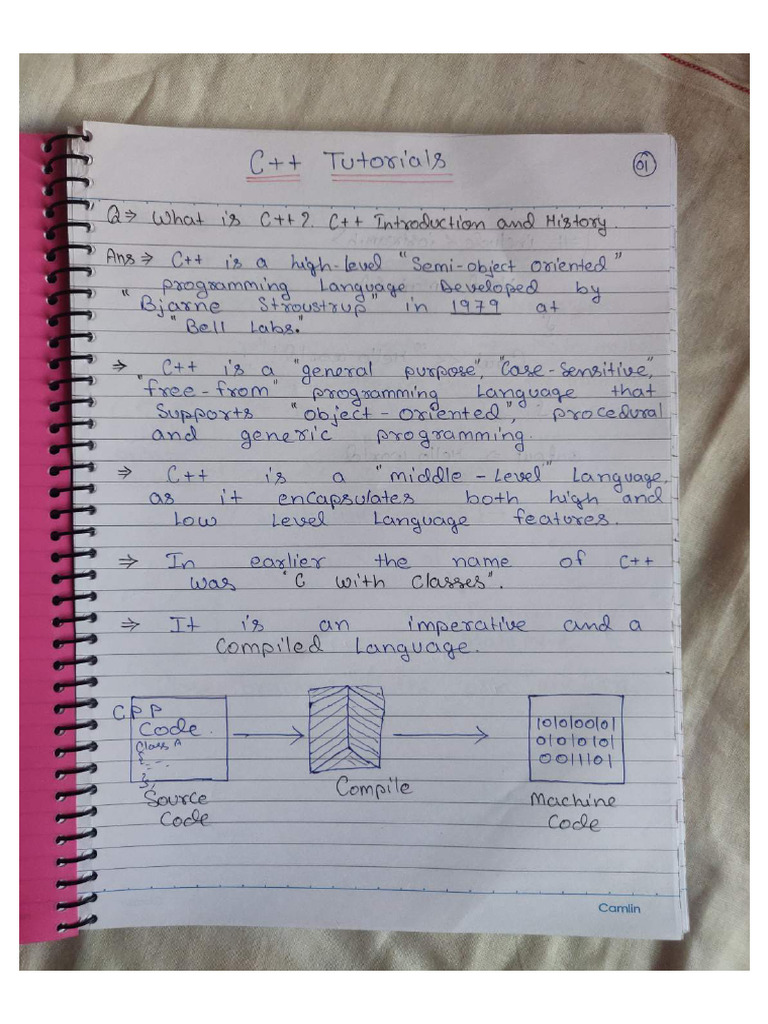 C++ Tutorials
01
Q⇒ What is C++? C++ Introduction and History.
Ans⇒ C++ is a high-level "Semi-object oriented"
programming Language Developed by
"Bjarne Stroustrup" in 1979 at
"Bell Labs."
⇒ C++ is a "general purpose", "Case-Sensitive",
"free-from" programming Language that
Supports "object-oriented", procedural
and generic programming.
⇒ C++ is a "middle-Level" Language.
as it encapsulates both high and
Low Level Language features.
⇒ In earlier the name of C++
was "C with Classes".
⇒ It is an imperative and a
Compiled Language.
CPP
Code.
Class A
{
};
Source
Code
Compile
10100101
01010101
0011101
Machine
Code
Camlin